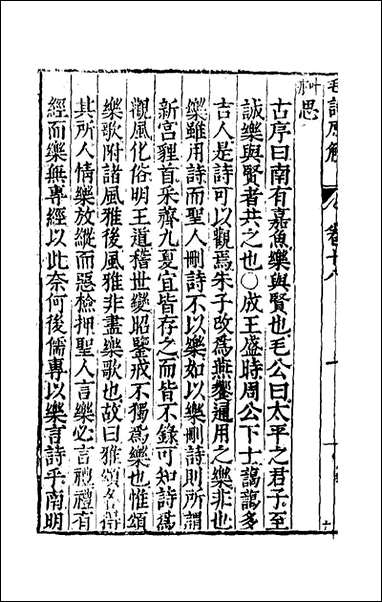 毛詩原解 卷十八
叶新 思
古序曰南有嘉魚樂與賢也毛公曰太平之君子至
誠樂與賢者共之也○成王盛時周公下士藹藹多
吉人是詩可以觀焉朱子改為燕饗通用之樂非也
樂雖用詩而聖人刪詩不以樂如以樂刪詩則所謂
新宮貍首采齊九夏宜皆存之而皆不錄可知詩為
觀風化俗明王道稽世變昭鑒戒不獨為樂也惟頌
樂歌附諸風雅後風雅非盡樂歌也故曰雅頌各得
其所人情樂放縱而惡檢押聖人言樂必言禮禮有
經而樂無專經以此奈何後儒專以樂言詩乎南明